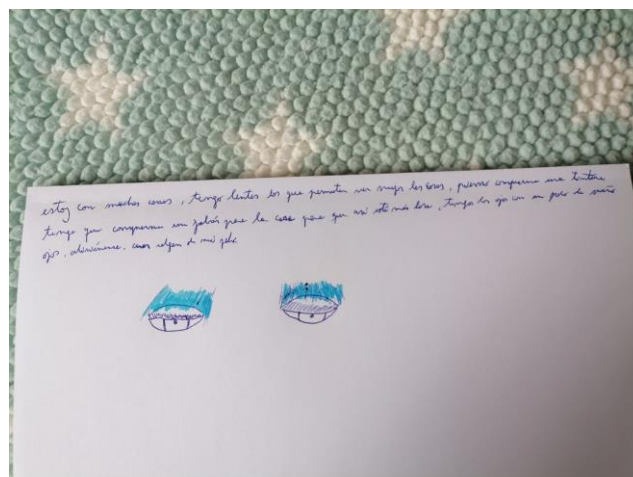 estoy con muchas cosas, tengo lentes los que permiten ver mejor las cosas, pienso comprarme una tintura
tengo que comprarme un jabón para la cara para que así esté más lisa, tengo los ojos con un poco de sueño
ojos, cosas salgan de mi